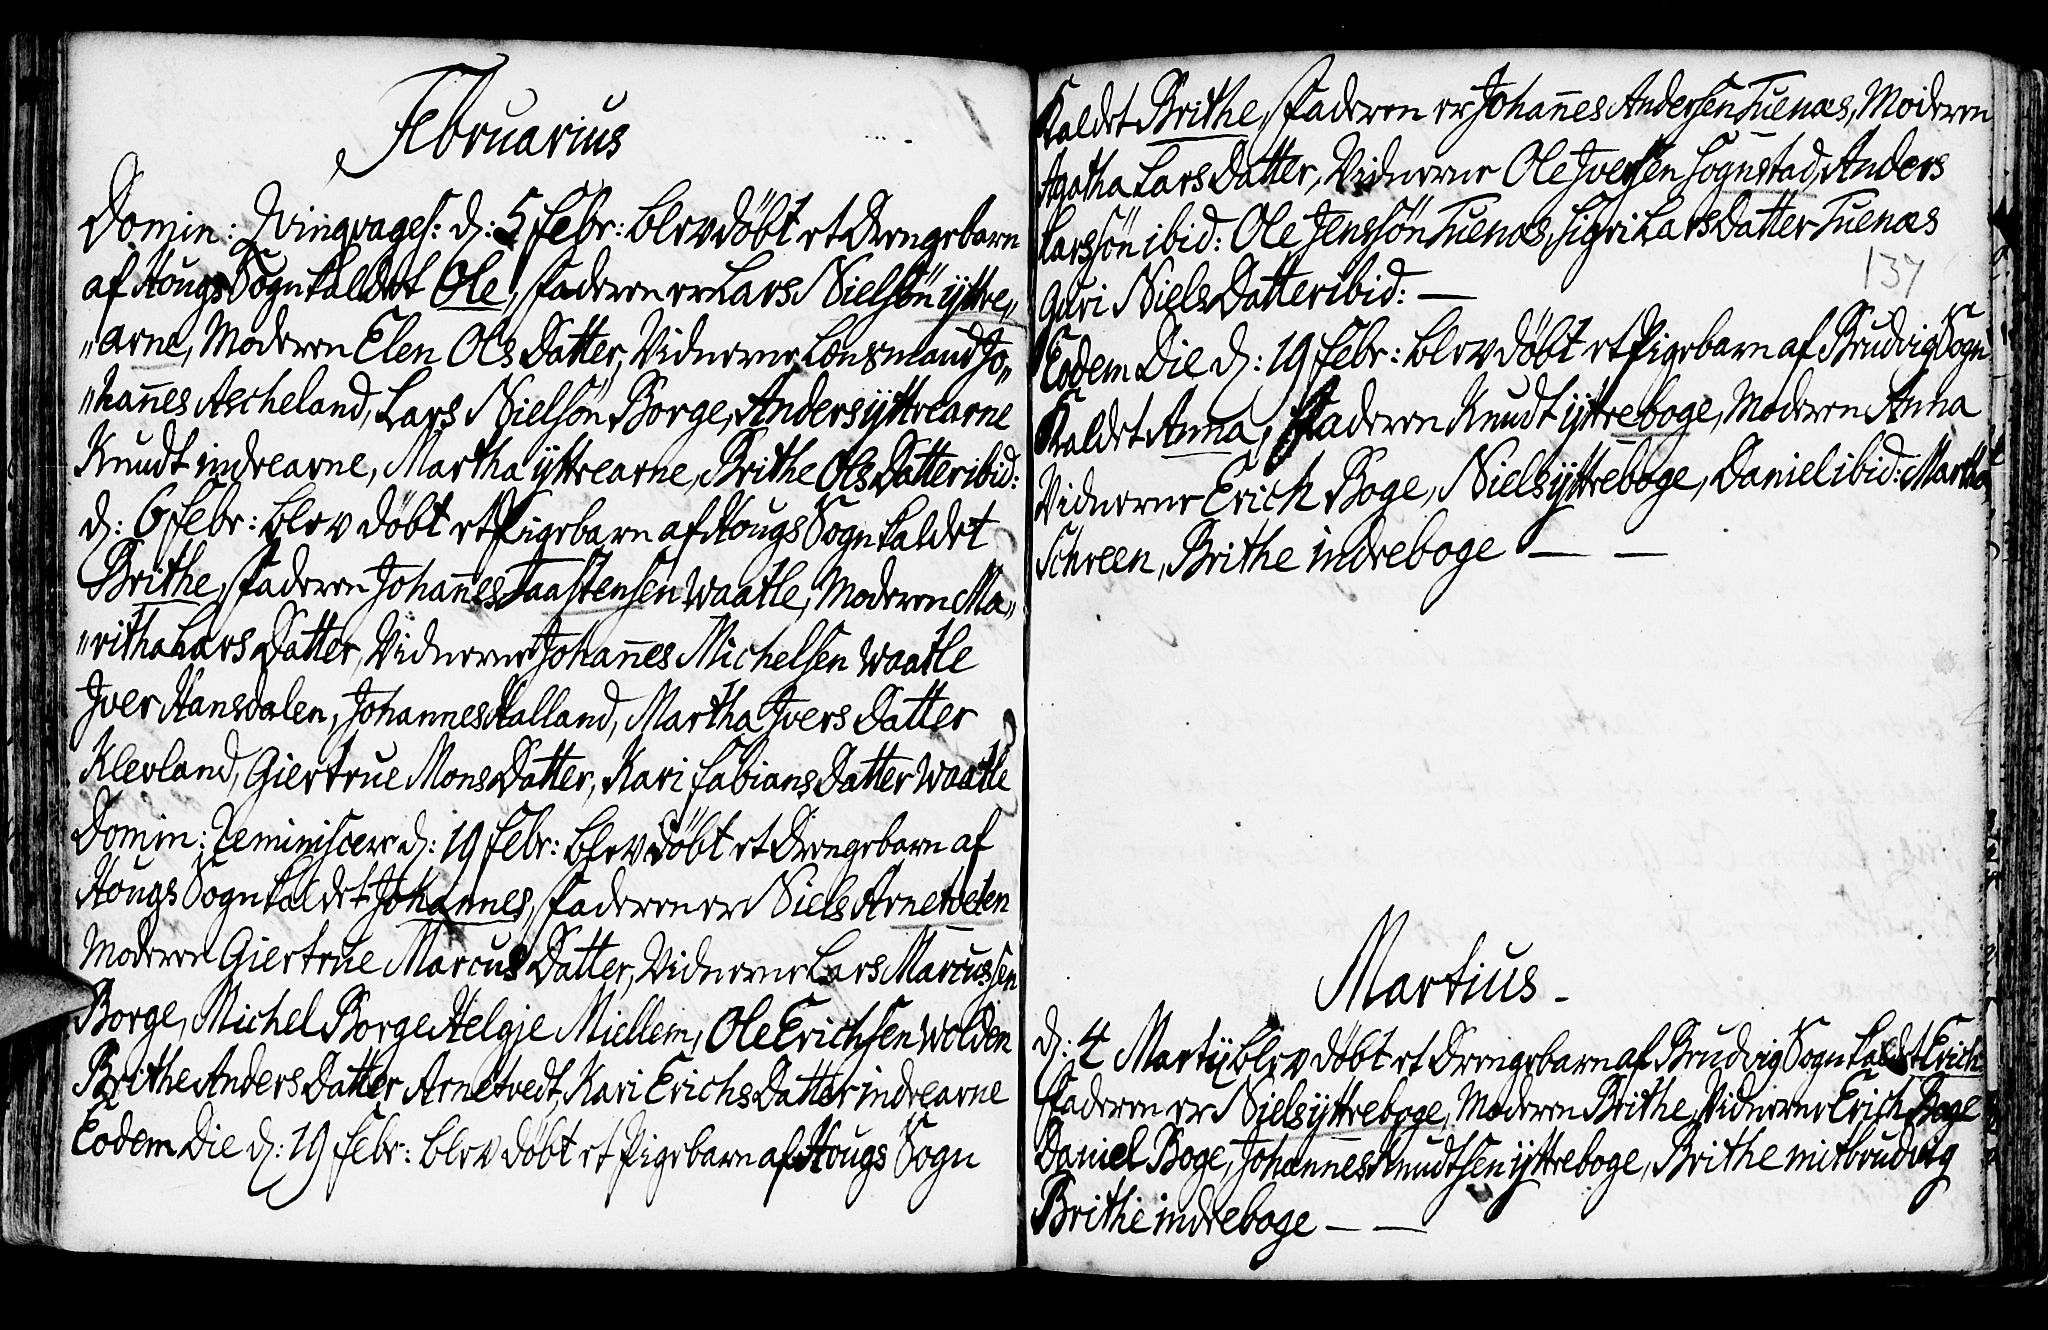 Februarius
Domin: Qvinqvages: d: 5 Febr: blev døbt et Drengebarn
af Hougs Sogn kaldet Ole, Faderen er Lars Nielsön ÿttre„
„arne, Moderen Elen Ols Datter, Vidnerne Lensmand Jo„
„hañes Ascheland, Lars Nielsön Borge, Anders ÿttrearne
Knudt indrearne, Martha ÿttrearne, Brithe Ols Datter ibid:
d: 6 Febr: blev døbt et Pigebarn af Hougs Sogn kaldet
Brithe, Faderen Johañes Taastensen Waatle, Moderen Ma„
„ritha Lars Datter, Vidnerne Johañes Michelsen Waatle
Jver Hansdalen, Johannes Halland, Martha Jvers Datter
Klevland, Giertrue Mons Datter, Kari Fabians Datter Waatle
Domin: Reminiscere d: 19 Febr: blev døbt et Drengebarn af
Hougs Sogn kaldet Johannes, Faderen er Niels Arnetveten
Moderen Giertrue Marcus Datter, Vidnerne Lars Marcussen
Borge, Michel Borge Helgje Miellem, Ole Erichsen Wolden
Brithe Anders Datter Arnetvedt, Kari Erichs Datter indrearne
Eodem Die d: 19 Febr: blev døbt et Pigebarn af Hougs Sogn
Kaldet Brithe, Faderen er Johañes Andersen Tuenæs, Moderen
Agatha Lars Datter, Vidnerne Ole Jversen Sognstad, Anders
Larssön ibid: Ole Jenssön Tuenæs, Sigri Lars Datter Tuenæs
137
Guri Niels Datter ibid: —
Eodem Die d: 19 Febr: blev døbt et Pigebarn af Brudvig Sogn
Kaldet Anna, Faderen Knudt ÿttreboge, Moderen Anna
Vidnerne Erich Boge, Niels ÿttreboge, Daniel ibid: Martha
Schreen, Brithe indreboge — —
Martius -
d: 4 Martij blev døbt et Drengebarn af Brudvig Sogn kaldet Erich
Faderen er Niels ÿttreboge, Moderen Brithe, Vidnerne Erich Boge
Daniel Boge, Johannes Knudtsen ÿttreboge, Brithe mitbrudvig
Brithe indreboge — —